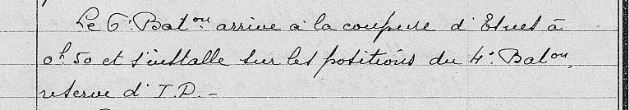 Le 6e Baton arrive à la coupure d'Etues à
0h50 et s'installe sur les positions du 4e Baton,
reserve d'I.D. –